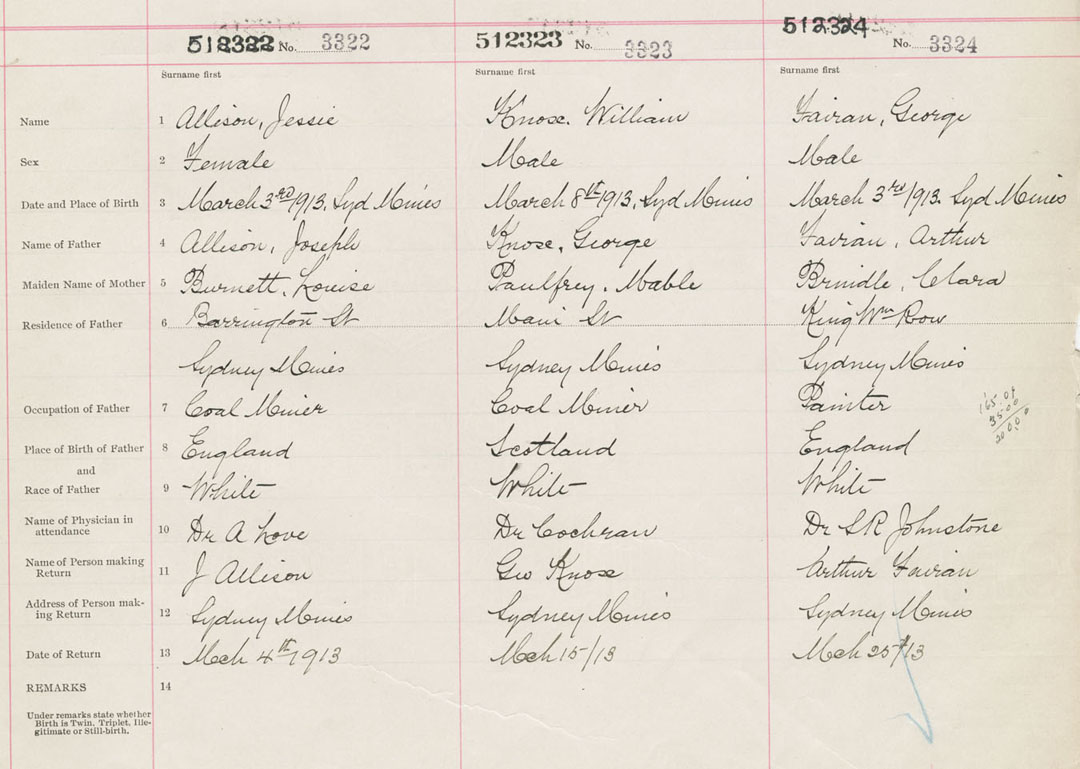 512322 No. 3322 512323 No. 3323 512324 No. 3324
Surname first Surname first Surname first
Name 1 Allison, Jessie Knox, William Fairan, George
Sex 2 Female Male Male
Date and Place of Birth 3 March 3rd/1913, Syd Mines March 8th 1913, Syd Mines March 3rd/1913. Syd Mines
Name of Father 4 Allison, Joseph Knox, George Fairan, Arthur
Maiden Name of Mother 5 Burnett, Louise Paulfrey, Mable Brindle, Clara
Residence of Father 6 Barrington St Main St King Wm Row
Sydney Mines Sydney Mines Sydney Mines
Occupation of Father 7 Coal Miner Coal Miner Painter
Place of Birth of Father 8 England Scotland England
and
Race of Father 9 White White White
Name of Physician in
attendance 10 Dr A Love Dr Cochran Dr S R Johnstone
Name of Person making
Return 11 J Allison Geo Knox Arthur Fairan
Address of Person mak-
ing Return 12 Sydney Mines Sydney Mines Sydney Mines
Date of Return 13 Mch 4th 1913 Mch 15/13 Mch 25/13
REMARKS 14
Under remarks state whether
Birth is Twin, Triplet, Ille-
gitimate or Still-birth.